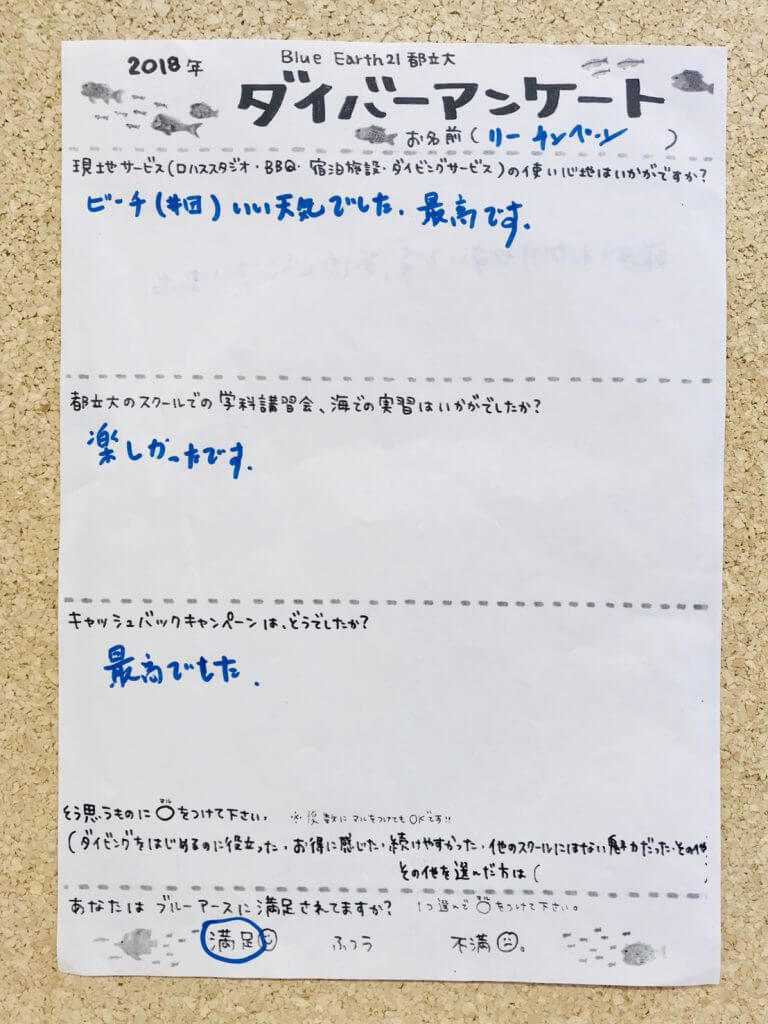 2018年
Blue Earth21 都立大
ダイバーアンケート
お名前( リー )
現地サービス(ロハススタジオ・BBQ・宿泊施設・ダイビングサービス)の使い心地はいかがですか?
ビーチ( )いい天気でした. 最高です.
都立大のスクールでの学科講習会、海での実習はいかがでしたか?
楽しかったです.
キャッシュバックキャンペーンは、どうでしたか?
最高でした.
そう思うものに○をつけて下さい。 ※複数にマルをつけてもOKです!!
マル
(ダイビングをはじめるのに役立った・お得に感じた・続けやすかった・他のスクールにはない魅力だった・その他
その他を選んだ方は(
あなたは ブルーアースに満足されてますか? 1つ選んで○をつけて下さい。
満足 ふつう 不満。